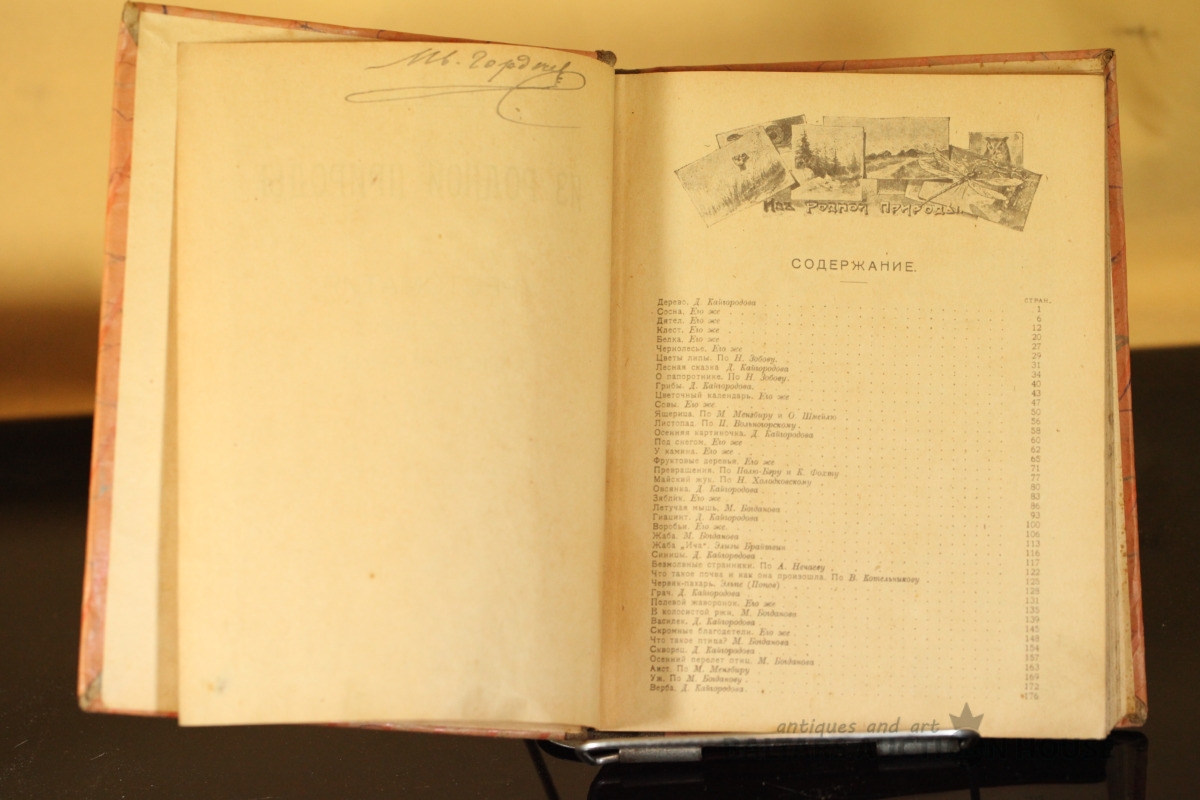 Ив. Гордѣев
ИЗ РОДНОЙ ПРИРОДЫ
Изъ Родной Природы.
СОДЕРЖАНИЕ.
СТРАН.
Дерево. Д. Кайгородова 1
Сосна. Его же 6
Дятел. Его же 12
Клест. Его же 20
Белка. Его же 27
Чернолесье. Его же 29
Цветы липы. По Н. Зобову. 31
Лесная сказка Д. Кайгородова 34
О папоротнике. По Н. Зобову. 40
Грибы. Д. Кайгородова. 43
Цветочный календарь. Его же 47
Совы. Его же 50
Ящерица. По М. Мензбиру и О. Шмейлю 56
Листопад. По П. Вольногорскому. 58
Осенняя картиночка. Д. Кайгородова 60
Под снегом. Его же 62
У камина. Его же 65
Фруктовые деревья. Его же 71
Превращения. По Поль-Беру и К. Фохту 77
Майский жук. По Н. Холодковскому 80
Овсянка. Д. Кайгородова 82
Зяблик. Его же 86
Летучая мышь. М. Богданова 93
Гиацинт. Д. Кайгородова 100
Воробьи. Его же. 106
Жаба. М. Богданова 113
Жаба „Ика“. Элизы Брайтвин 116
Синицы. Д. Кайгородова 117
Безмолвные странники. По А. Нечаеву 122
Что такое почва и как она произошла. По В. Котельникову 125
Червяк-пахарь. Эльпе (Попов) 128
Грач. Д. Кайгородова 131
Полевой жаворонок. Его же 135
В колосистой ржи. М. Богданова 139
Василек. Д. Кайгородова 145
Скромные благодетели. Его же 148
Что такое птица? М. Богданова 154
Скворец. Д. Кайгородова 157
Осенний перелет птиц. М. Богданова 163
Аист. По М. Мензбиру 169
Уж. По М. Богданову 172
Верба. Д. Кайгородова. 176
antiques and art